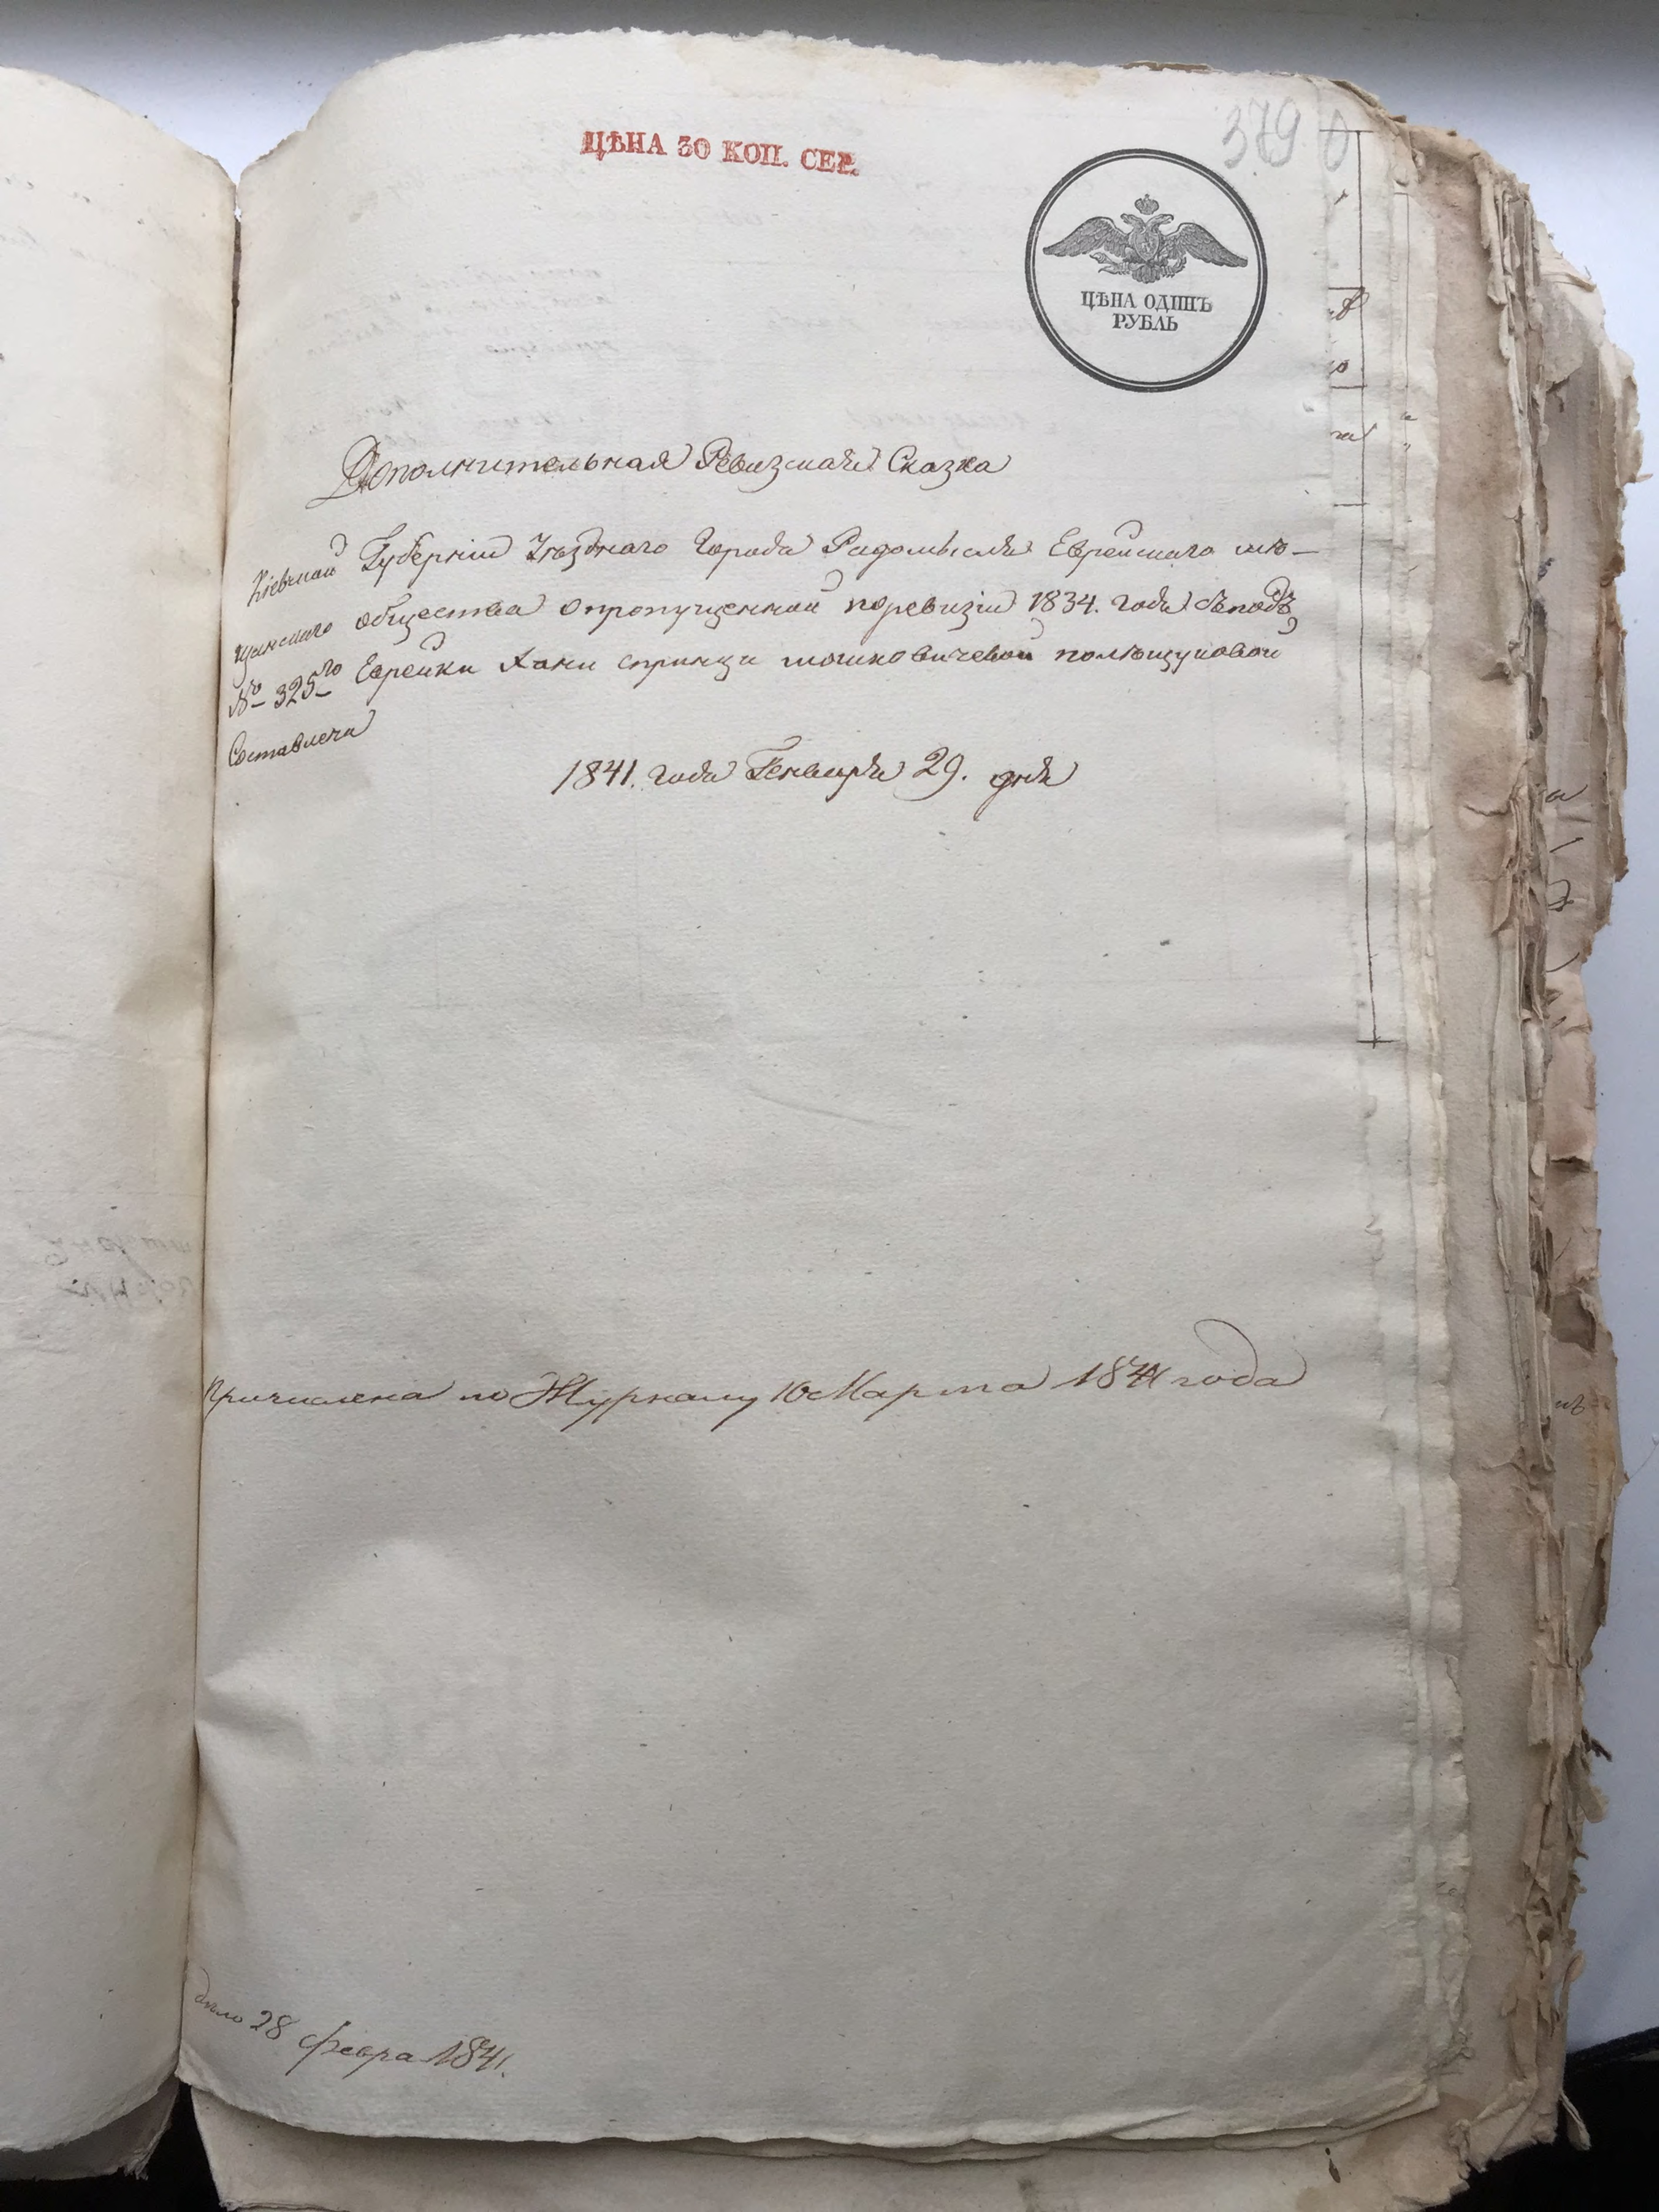 379
ЦѢНА 30 КОП. СЕР.
ЦѢНА ОДИНЪ
РУБЛЬ
Дополнительная Ревизская Сказка
Кіевской Губерніи Уѣзднаго Города Радомысля Еврейскаго мѣ-
щанскаго общества о пропущенной поревизіи 1834. года съподъ
№ 325го Еврейки Хани спринци мошковичевой полѣщуковой
Составлена
1841. года Генваря 29. дня
Причислена по Журналу 10 Марта 1841 года
28 февра 1841.